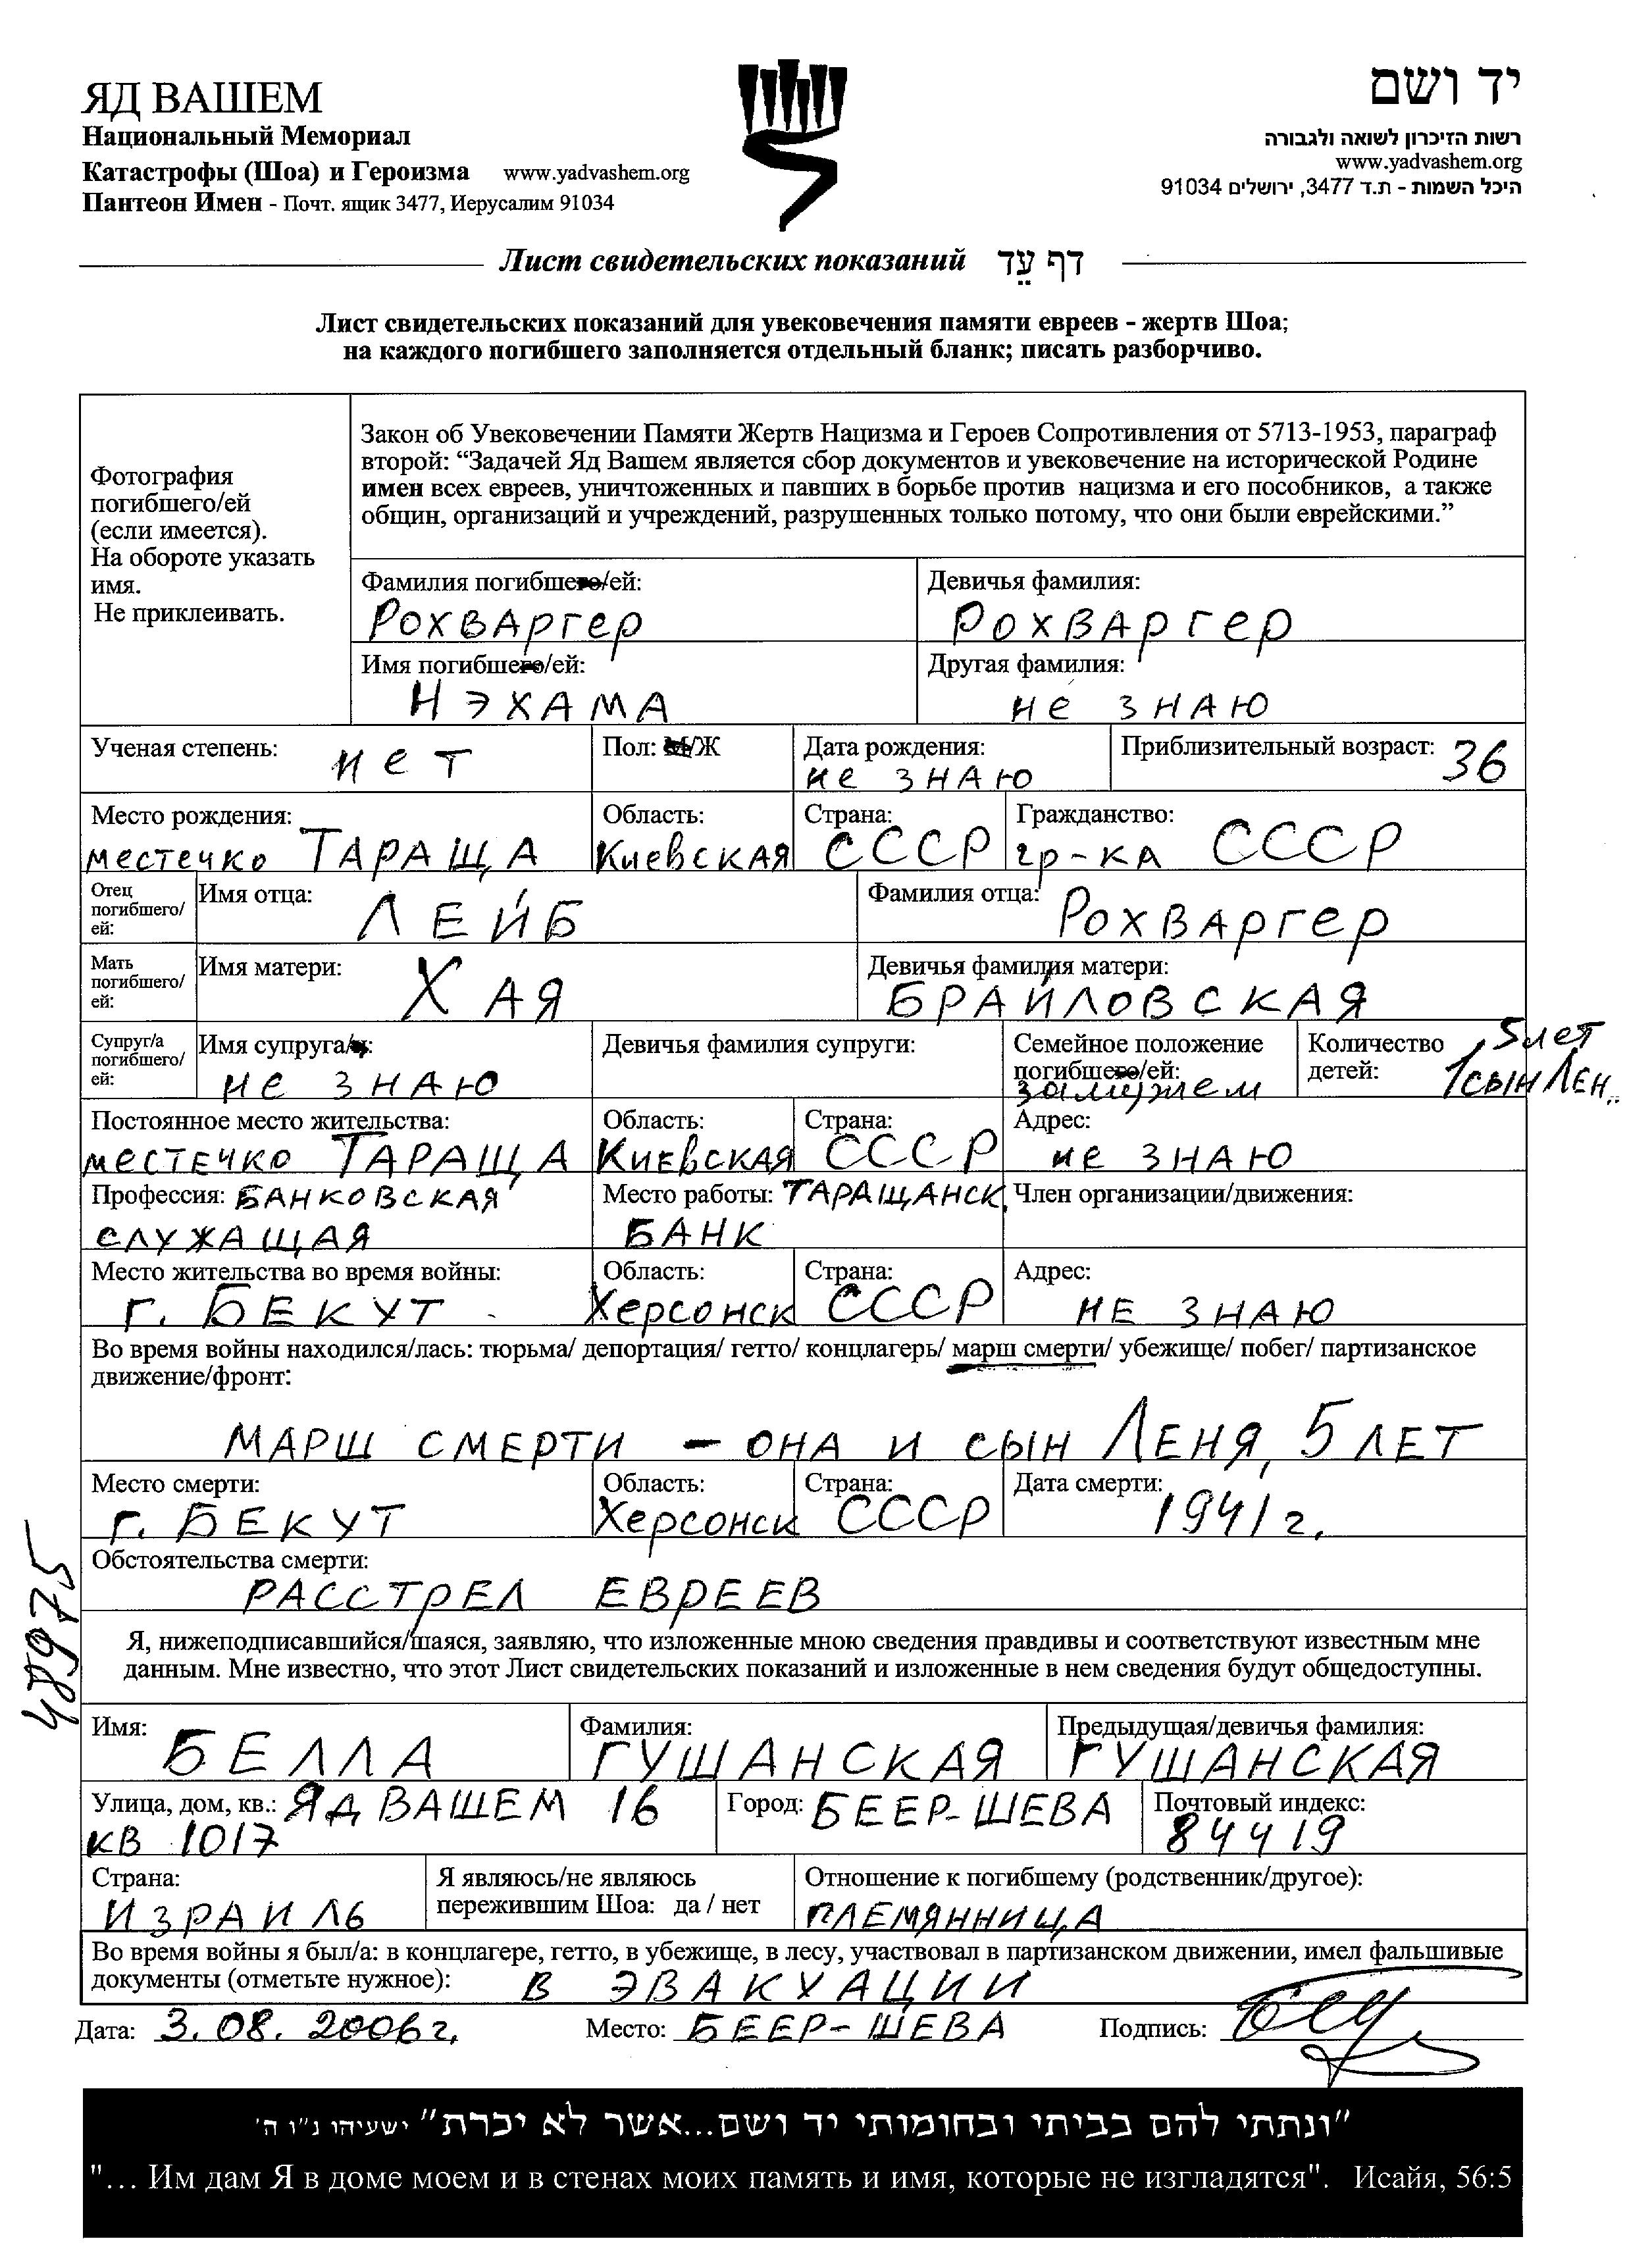 ЯД ВАШЕМ
Национальный Мемориал
Катастрофы (Шоа) и Героизма www.yadvashem.org
Пантеон Имен - Почт. ящик 3477, Иерусалим 91034
יד ושם
רשות הזיכרון לשואה ולגבורה
www.yadvashem.org
היכל השמות - ת.ד 3477, ירושלים 91034
Лист свидетельских показаний דף עֵד
Лист свидетельских показаний для увековечения памяти евреев - жертв Шоа;
на каждого погибшего заполняется отдельный бланк; писать разборчиво.
Фотография
погибшего/ей
(если имеется).
На обороте указать
имя.
Не приклеивать.
Закон об Увековечении Памяти Жертв Нацизма и Героев Сопротивления от 5713-1953, параграф
второй: “Задачей Яд Вашем является сбор документов и увековечение на исторической Родине
имен всех евреев, уничтоженных и павших в борьбе против нацизма и его пособников, а также
общин, организаций и учреждений, разрушенных только потому, что они были еврейскими.”
Фамилия погибшего/ей: Девичья фамилия:
Рохваргер Рохваргер
Имя погибшего/ей: Другая фамилия:
НЭХАМА не знаю
Ученая степень: нет Пол: М/Ж Дата рождения: Приблизительный возраст: 36
не знаю
Место рождения: Область: Страна: Гражданство:
местечко ТАРАЩА Киевская СССР гр-ка СССР
Отец
погибшего/
ей:
Имя отца: ЛЕЙБ Фамилия отца: Рохваргер
Мать
погибшего/
ей:
Имя матери: ХАЯ Девичья фамилия матери:
БРАЙЛОВСКАЯ
Супруг/а
погибшего/
ей:
Имя супруга/и: Девичья фамилия супруги: Семейное положение
погибшего/ей:
не знаю замужем
Количество
детей: 5 лет
1 сын Лен..
Постоянное место жительства: Область: Страна: Адрес:
местечко ТАРАЩА Киевская СССР не знаю
Профессия: БАНКОВСКАЯ Место работы: ТАРАЩАНСК. Член организации/движения:
служащая БАНК
Место жительства во время войны: Область: Страна: Адрес:
г. БЕКУТ Херсонск СССР не знаю
Во время войны находился/лась: тюрьма/ депортация/ гетто/ концлагерь/ марш смерти/ убежище/ побег/ партизанское
движение/фронт:
МАРШ СМЕРТИ - ОНА И СЫН ЛЕНЯ, 5 ЛЕТ
Место смерти: Область: Страна: Дата смерти:
г. БЕКУТ Херсонск СССР 1941 г.
Обстоятельства смерти:
РАССТРЕЛ ЕВРЕЕВ
48975
Я, нижеподписавшийся/шаяся, заявляю, что изложенные мною сведения правдивы и соответствуют известным мне
данным. Мне известно, что этот Лист свидетельских показаний и изложенные в нем сведения будут общедоступны.
Имя: Фамилия: Предыдущая/девичья фамилия:
БЕЛЛА ГУШАНСКАЯ ГУШАНСКАЯ
Улица, дом, кв.: ЯД ВАШЕМ 16 Город: БЕЕР-ШЕВА Почтовый индекс:
КВ 1017 84419
Страна: Я являюсь/не являюсь Отношение к погибшему (родственник/другое):
ИЗРАИЛЬ пережившим Шоа: да / нет ПЛЕМЯННИЦА
Во время войны я был/а: в концлагере, гетто, в убежище, в лесу, участвовал в партизанском движении, имел фальшивые
документы (отметьте нужное): В ЭВАКУАЦИИ
Дата: 3.08.2006 г. Место: БЕЕР-ШЕВА Подпись:
"ונתתי להם בביתי ובחומותי יד ושם...אשר לא יכרת" ישעיהו נ"ו ה'
"... Им дам Я в доме моем и в стенах моих память и имя, которые не изгладятся". Исайя, 56:5